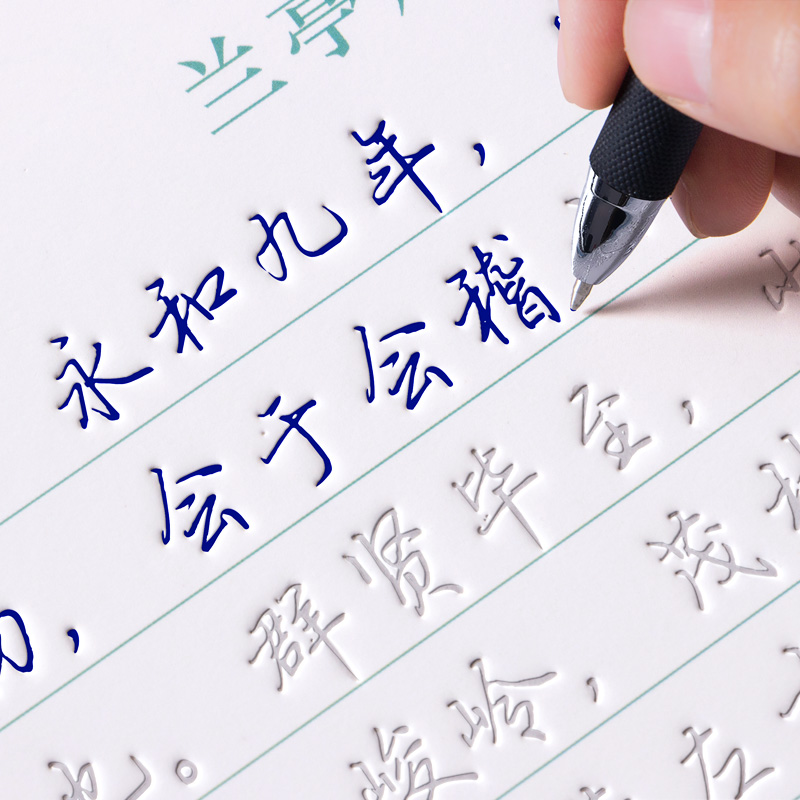 兰亭
永和九年，
会于会稽
群贤毕至，
也。
峻岭，
茂
左